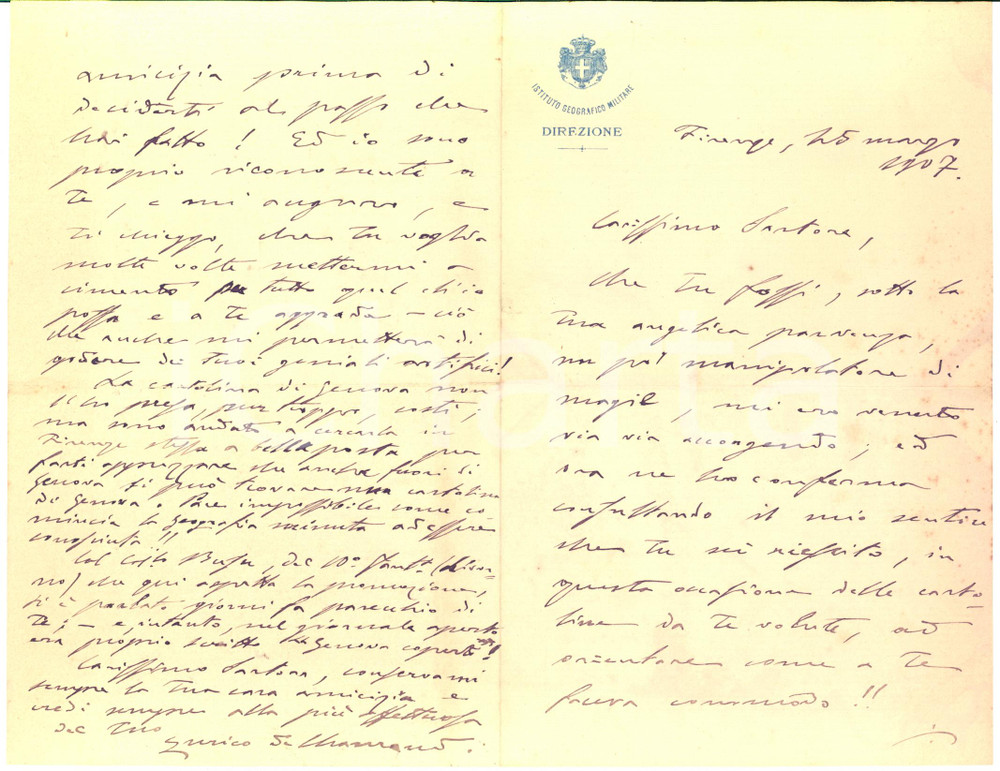 ISTITUTO GEOGRAFICO MILITARE
DIREZIONE
Firenze, 25 marzo
1907.
Carissimo Sartore,
Che tu fossi, sotto la
tua angelica parvenza,
un po' manipolatore di
magie, mi ero venuto
via via accorgendo; ed
ora ne ho conferma
confessando il mio sentire
che tu sei riescito, in
questa occasione delle carto-
line da te volute, ad
orientare come a te
faceva commodo!!
amicizia prima di
deciderti al passo che
hai fatto! Ed io sono
proprio riconoscente a
te, e mi auguro, e
ti chieggo, che tu voglia
molte volte mettermi a
cimento per tutto quel ch'io
possa e a te aggrada - ciò
che anche mi permetterà di
godere dei tuoi geniali artifici!
La cartolina di Genova non
l'ho presa, pur troppo, costì;
ma sono andato a cercarla in
Firenze stessa a bella posta per
farti apprezzare che anche fuori di
Genova si può trovare una cartolina
di Genova. Pare impossibile come co-
mincia la geografia minuta ad essere
conosciuta!!
Col Busu, del 10° Fant.
che qui aspetta la promozione,
si è parlato giorni fa parecchio di
te; - e, intanto, nel giornale aperto
era proprio scritto Genova coperta!
Carissimo Sartore, conservami
sempre la tua cara amicizia e
credi sempre alla più affettuosa
del tuo
Enrico de Chaurand.